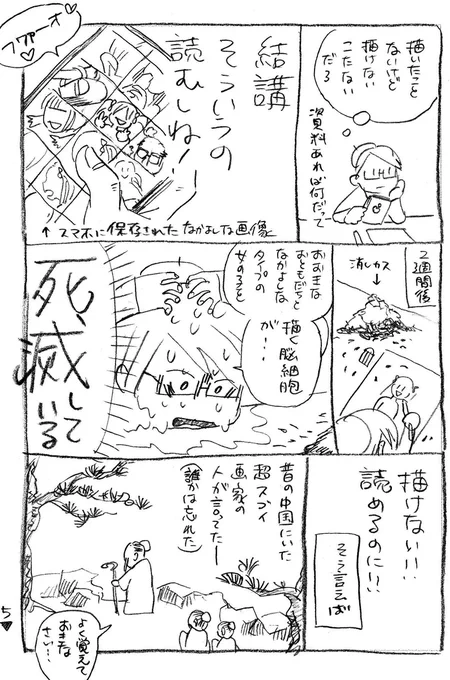 描いたこと
ないけど
描けない
こたない
だろ
資料あれば何だって
結講
そういうの
読むしね!
↑スマホに保存された なかよしな画像
フワァーオ♡
2週間後
消しカス
↓
おおきな
おともだちと
なかよしな
タイプの
女の子を
描く脳細胞
が!!
死滅して
いる
描けない!!
読めるのに!!
そう言えば
昔の中国にいた
超スゴイ
画家の
人が言ってたー
(誰かは忘れた)
よく覚えて
おきな
さい…
5▼